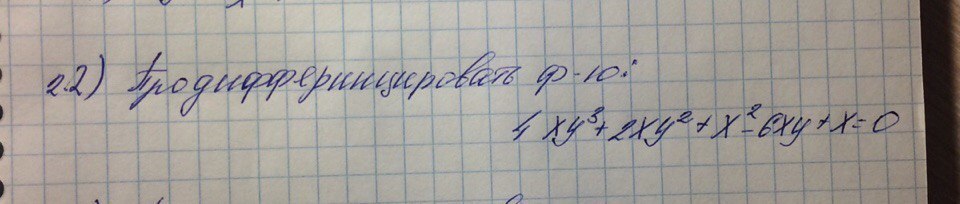 2.2) Продифференцировать ф-ю:
4xy³+2xy²+x²-6xy+x=0